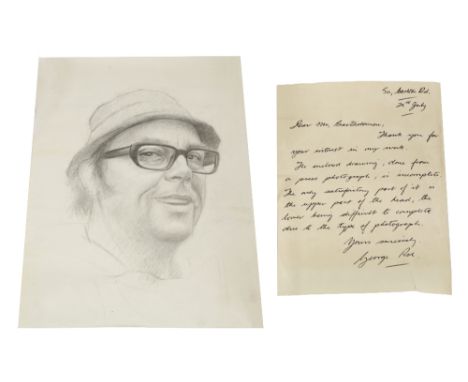 20th July
Dear Mr.
Thank you for
your interest in my work.
The enclosed drawing, done from
a press photograph, is incomplete.
The only satisfactory part of it is
the upper part of the head, the
lower being difficult to complete
due to the type of photograph.
Yours sincerely
George